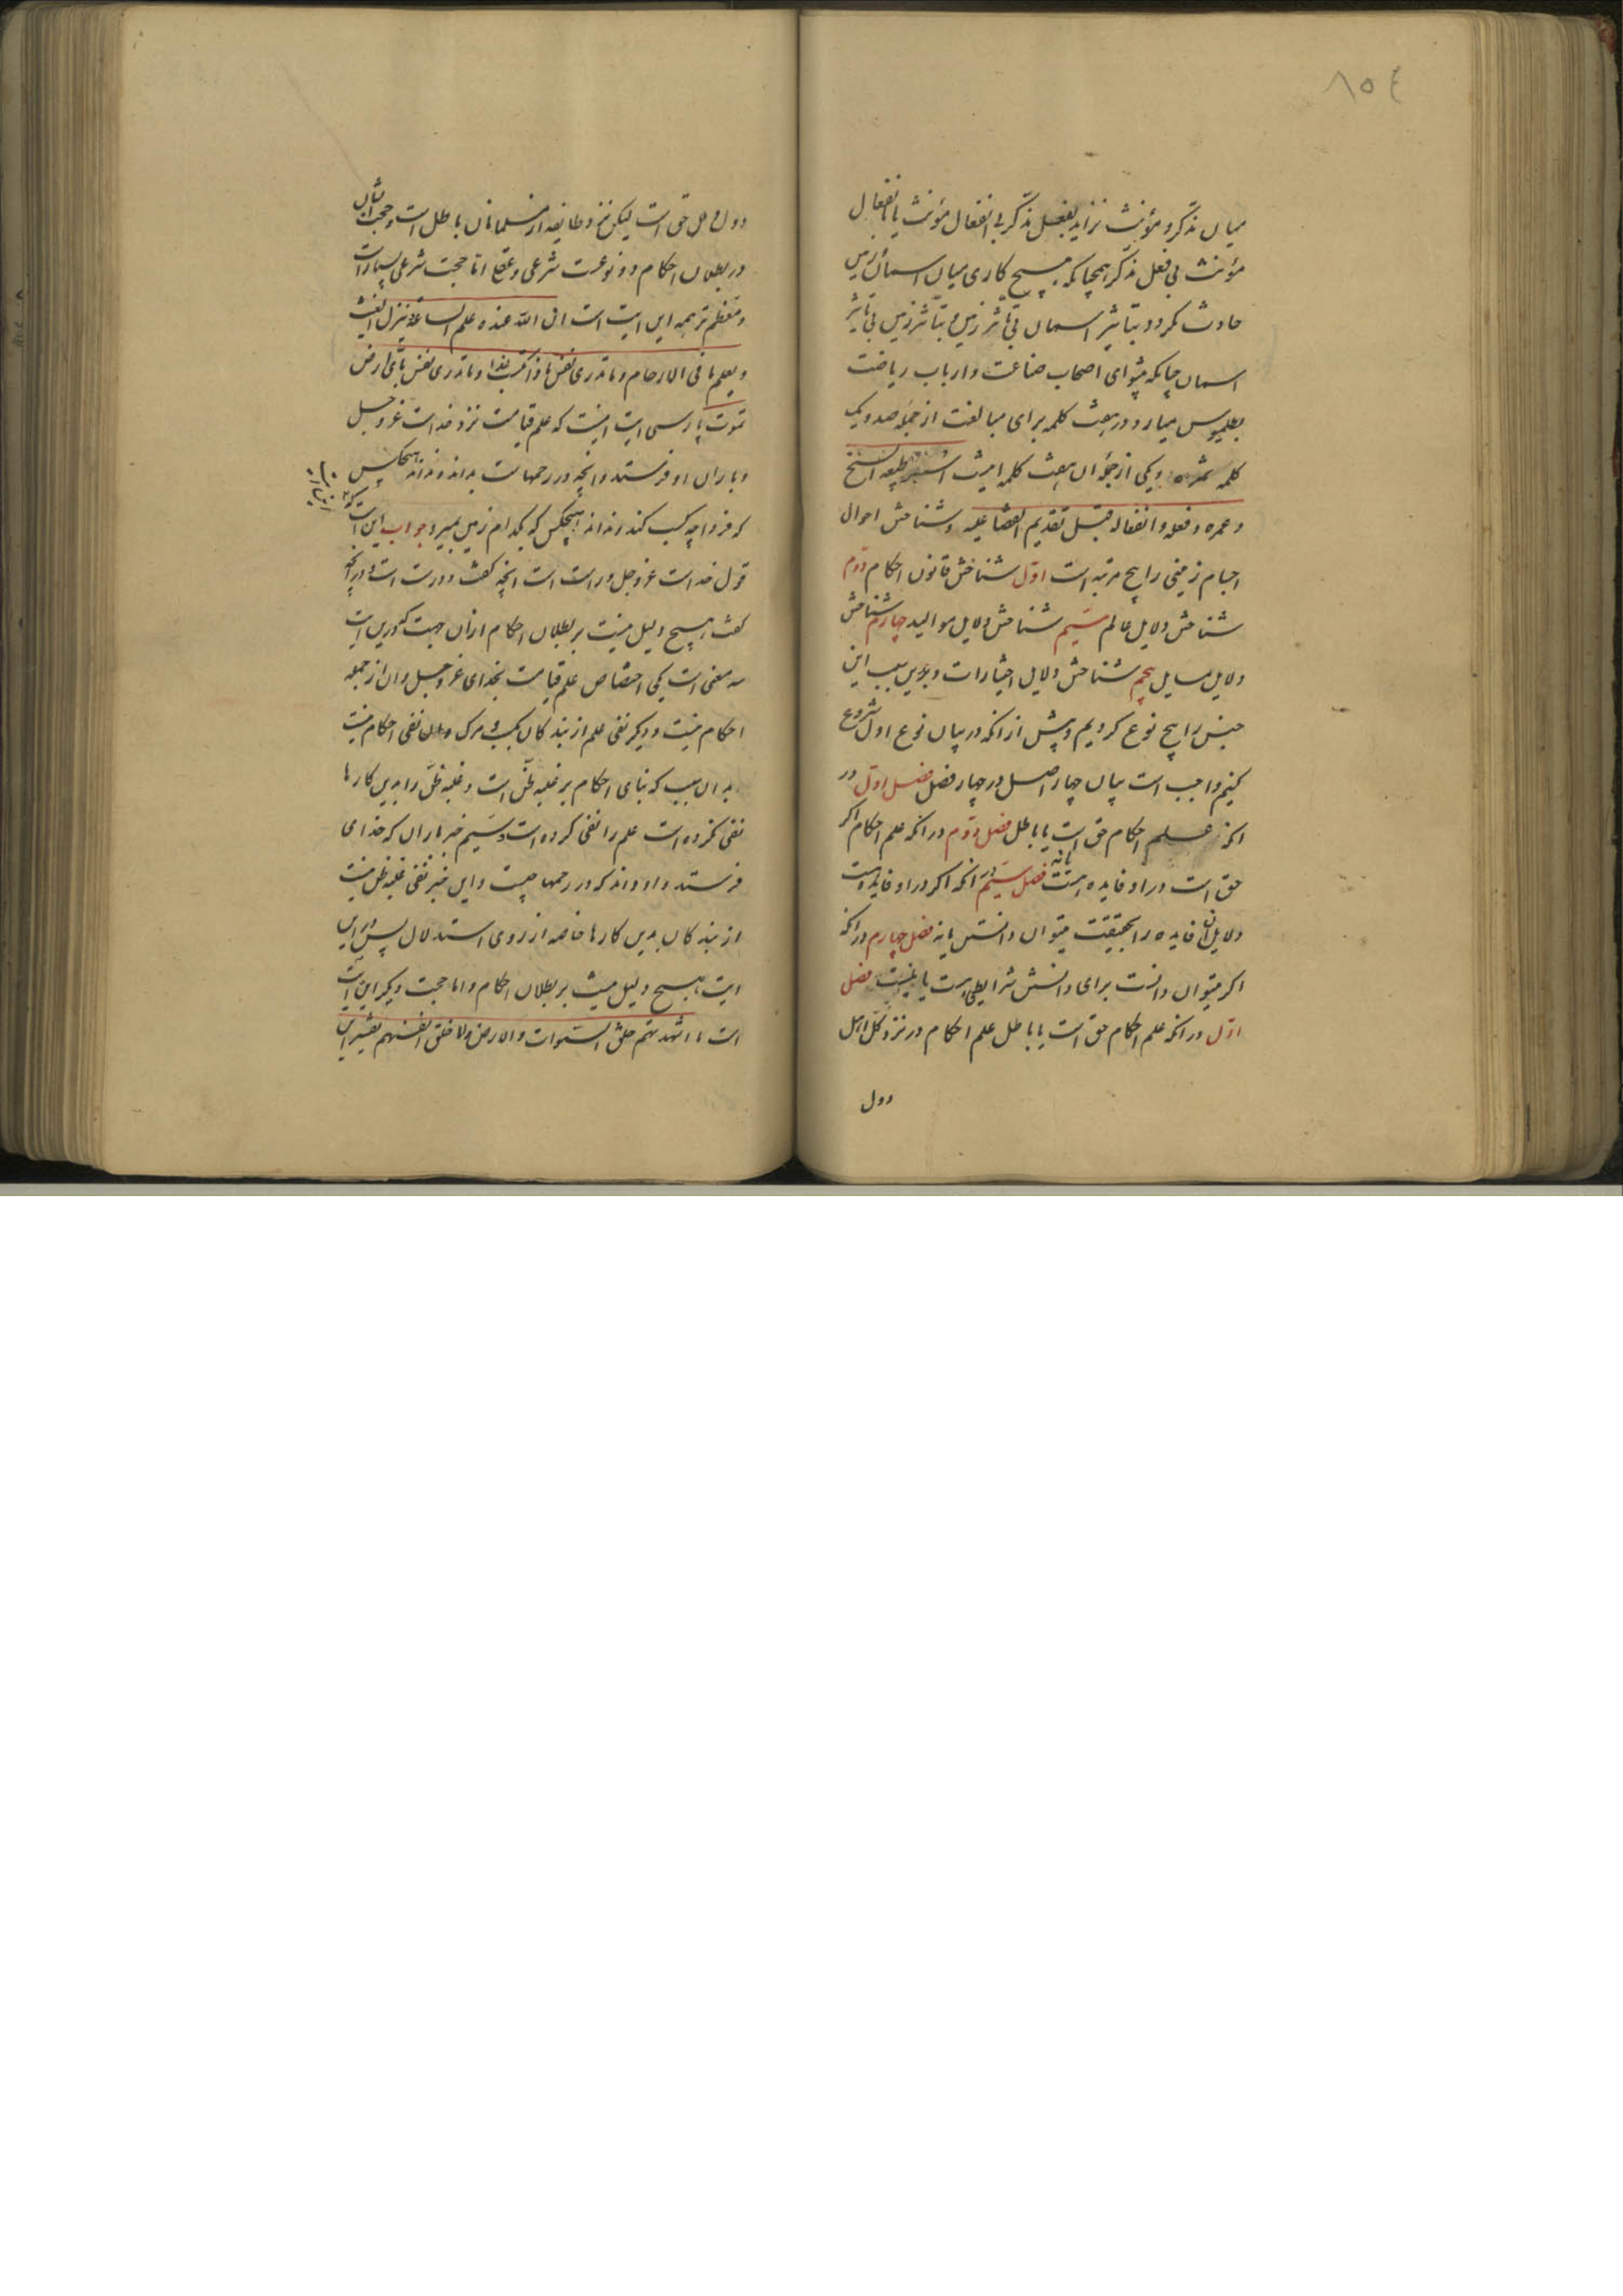 ٨٥٤
میان مذکر و مؤنث نزاید بفعل مذکر بی انفعال مؤنث یا بانفعال
مؤنث بی فعل مذکر همچنانکه هیچ کاری میان اسمان و زمین
حادث نکردد بتاثیر اسمان بی تاثر زمین و بتاثر زمین بی تاثیر
اسمان چنانکه پیشوای اصحاب صناعت و ارباب ریاضت
بطلمیوس میارد در هشت کلمه برای مبالغت از جمله صد و یک
کلمه ثمره و یکی از جمله ان هشت کلمه اینست
و شناختن احوال
اجسام زمینی را پنج مرتبه است اول شناختن قانون احکام دوم
شناختن دلایل عالم سیم شناختن دلایل موالید چهارم شناختن
دلایل مسایل پنجم شناختن دلایل اختیارات و بدین سبب این
جنس را پنج نوع کردیم و پیش از انکه در بیان نوع اول شروع
کنیم واجب است بیان چهار اصل در چهار فصل فصل اول در
انکه علم احکام حق است یا باطل فصل دوم در انکه علم احکام اکر
حق است در او فایده هست یا نه فصل سیم در انکه اکر در او فایده هست
دلایل ان فایده را بحقیقت میتوان دانستن یا نه فصل چهارم در انکه
اکر میتوان دانست برای دانستنش شرایطی هست یا نیست فصل
اول در انکه علم احکام حق است یا باطل علم احکام در نزد کل اهل
دول
دول و ملل حق است لیکن نزد طایفه از مسلمانان باطل است و حجت ایشان
در بطلان احکام دو نوعست شرعی و عقلی اما حجت شرعی بسیار است
و معظم ترهمه این ایت است ان الله عنده علم الساعة و ینزل الغیث
و یعلم ما فی الارحام و ما تدری نفس ماذا تکسب غدا و ما تدری نفس بأی ارض
تموت پارسی ایت اینست که علم قیامت نزد خداست عز و جل
و باران او فرستد و انچه در رحمهاست بداند و نداند هیچکس
که فردا چه کسب کند و نداند هیچکس که بکدام زمین بمیرد جواب این است
قول خداست عز و جل و راست است انچه کفت و درست است و در انچه
کفت هیچ دلیل نیست بر بطلان احکام از ان جهت که در این ایت
سه معنی است یکی اختصاص علم قیامت بخدای عز و جل و ان از جمله
احکام نیست و دیکر نفی علم از بندکان بکسب و مرک و ان نفی احکام نیست
بدان سبب که بنای احکام بر غلبه ظن است و غلبه ظن را بدین کارها
نفی نکرده است علم را نفی کرده است و سیم خبر باران که خدای
فرستد و او داند که در رحمها چیست و این خبر نفی غلبه ظن نیست
از بندکان بدین کارها خاصه از روی استدلال پس در این
ایت هیچ دلیل نیست بر بطلان احکام و اما حجت دیکر این ایت
است ما اشهدتهم خلق السموات و الارض ولا خلق انفسهم تفسیر این